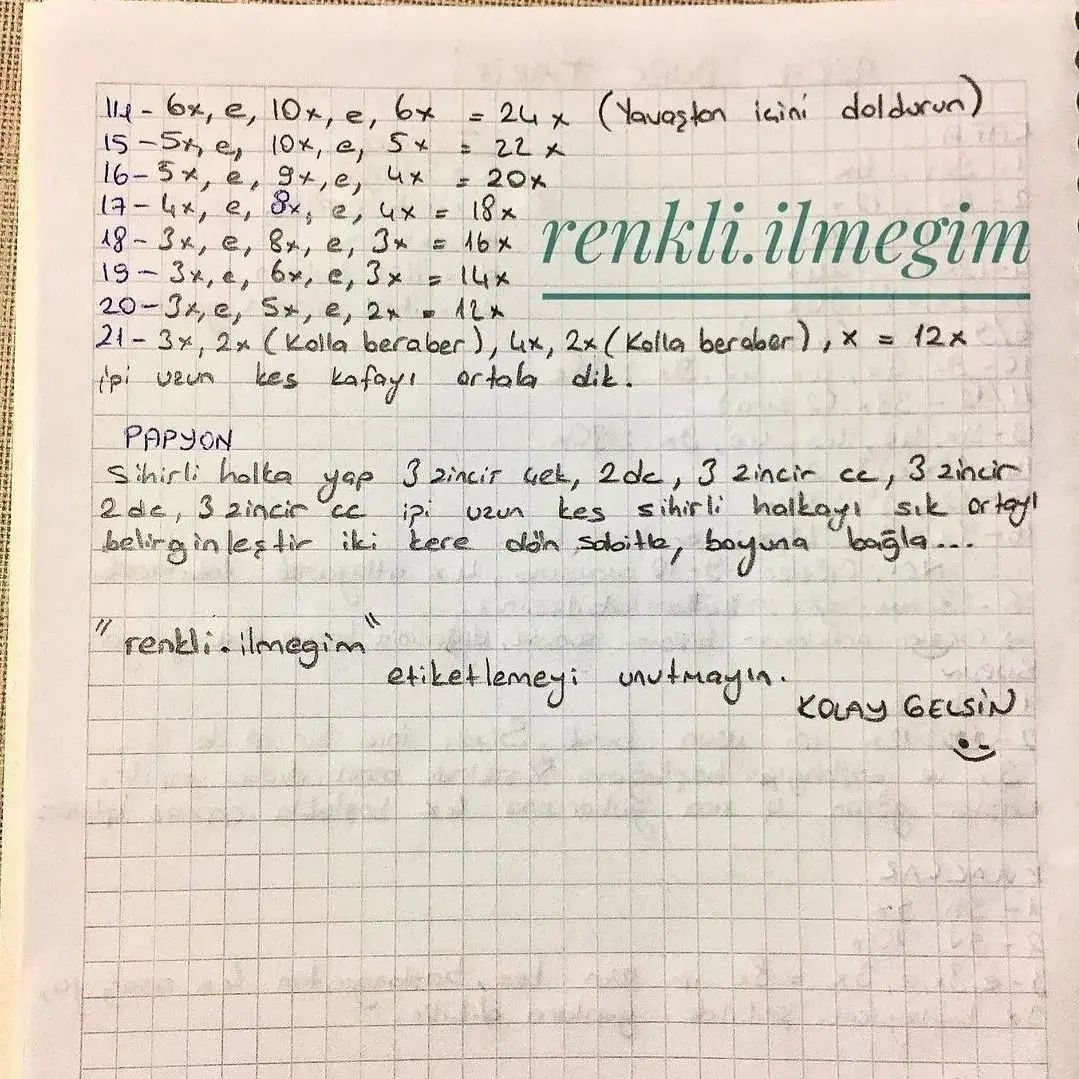 14- 6x, e, 10x, e, 6x = 24x (Yavaştan içini doldurun)
15-5x, e, 10x, e, 5x = 22x
16-5x, e, 9x, e, 4x = 20x
17-4x, e, 8x, e, 4x = 18x
18-3x, e, 8x, e, 3x = 16x
19-3x, e, 6x, e, 3x = 14x
20-3x, e, 5x, e, 2x = 12x
21-3x, 2x (Kolla beraber), 4x, 2x (Kolla beraber), x = 12x
ipi uzun kes kafayı ortala dik.
renkli.ilmegim
PAPYON
Sihirli halka yap 3 zincir çek, 2dc, 3 zincir cc, 3 zincir
2dc, 3 zincir cc ipi uzun kes sihirli halkayı sık ortayı
belirginleştir iki kere dön sabitle, boyuna bağla...
"renkli.ilmegim"
etiketlemeyi unutmayın.
KOLAY GELSİN